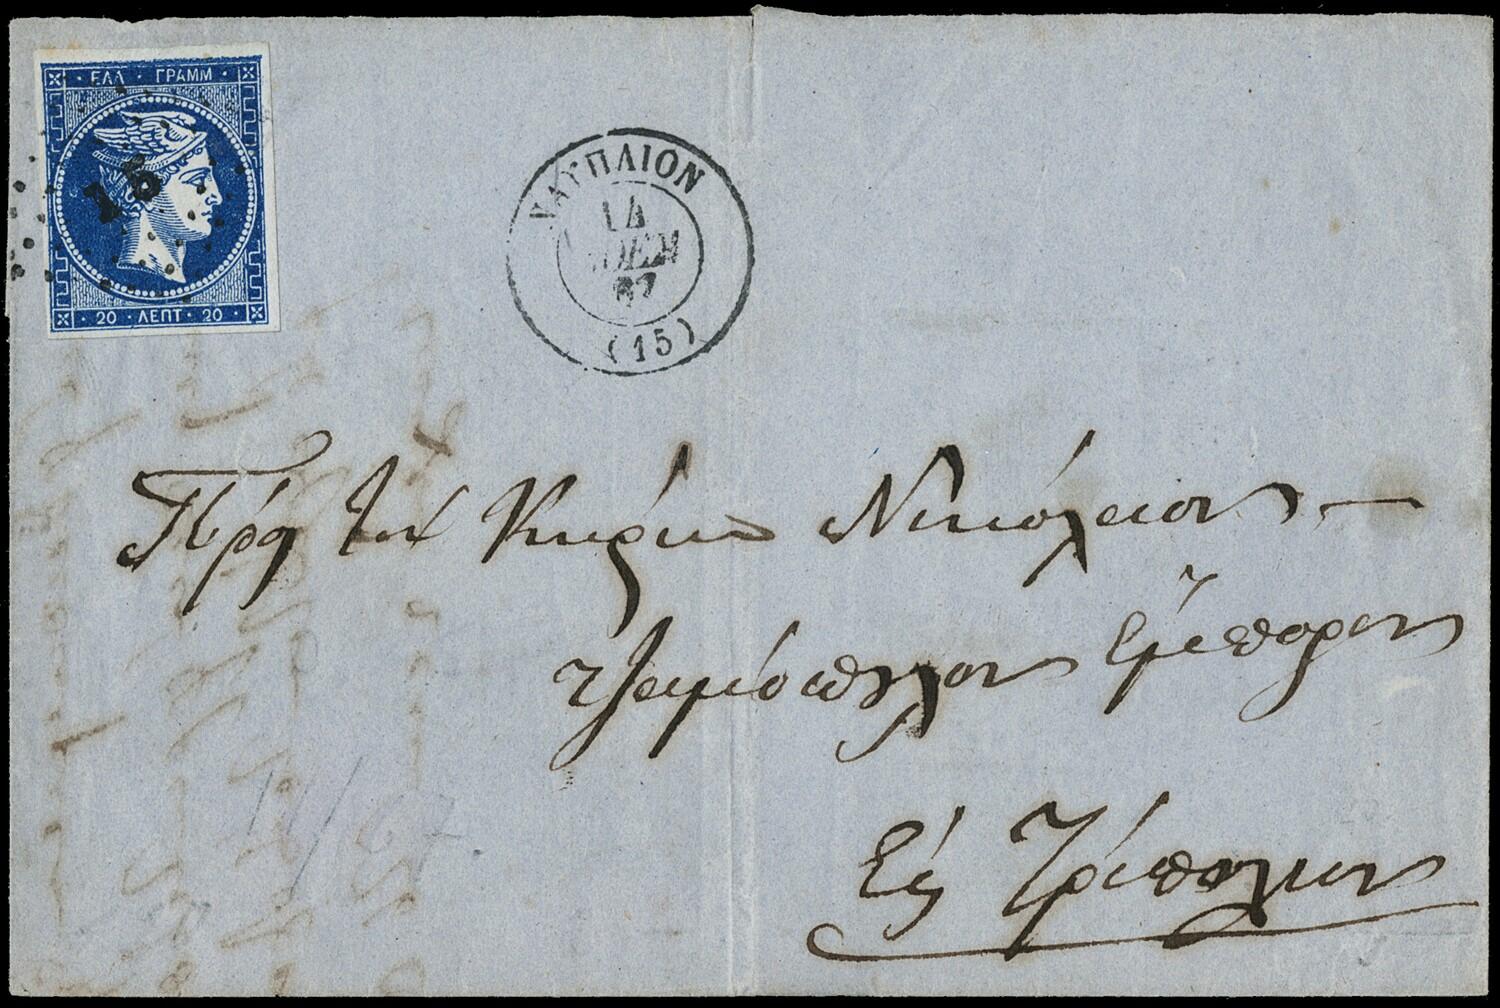 ΕΛΛ · ΓΡΑΜΜ
15
20 · ΛΕΠΤ · 20
ΝΑΥΠΛΙΟΝ
14
ΝΟΕΜ
67
(15)
Πρός τον Κύριον Νικόλαον
Τζαμόπουλον Έμπορον
Εἰς Τρίπολιν
11/67